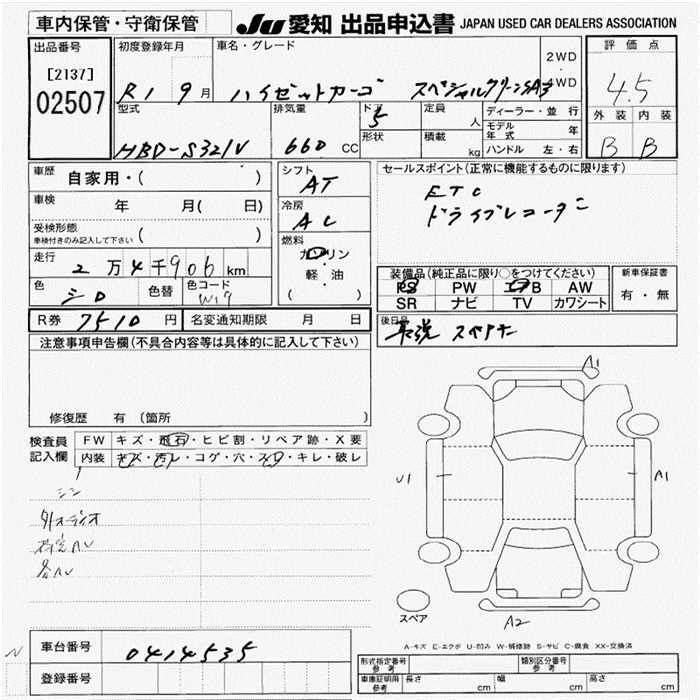 車内保管・守衛保管 JU 愛知 出品申込書 JAPAN USED CAR DEALERS ASSOCIATION
出品番号 初度登録年月 車名・グレード 2WD 評価点
[2137] R1 9月 ハイゼットカーゴ スペシャルクリーンSA3 4WD 4.5
02507 型式 排気量 ドア 定員 ディーラー・並行 外装 内装
HBD-S321V 660 CC 5 人 モデル年式 年 B B
形状 積載 kg ハンドル 左・右
車歴 自家用・( ) シフト AT セールスポイント(正常に機能するものに限ります)
車検 年 月( 日) 冷房 AC ETC
受検形態 ( ) ドライブレコーダー
車検付きのみ記入して下さい
燃料 ガソリン
走行 2万4千906km ・ 装備品(純正品に限り○をつけてください) 新車保証書
軽・油 PS PW エアB AW 有・無
色 シロ 色替 色コード W19 ( ) SR ナビ TV カワシート
R券 7510円 名変通知期限 月 日 後日品
取説 スペアキー
注意事項申告欄(不具合内容等は具体的に記入して下さい)
A1
修復歴 有(箇所
検査員 FW キズ・飛石・ヒビ割・リペア跡・X要
記入欄 内装 キズ・汚レ・コゲ・穴・スレ・キレ・破レ
U1 A1
外オーディオ
スペア A2
A-キズ E-エクボ U-凹み W-補修跡 S-サビ C-腐食 XX-交換済
車台番号 0414535
形式指定番号 参考 類別区分番号 参考
登録番号
車庫証明用 参考 長さ cm 幅 cm 高さ cm